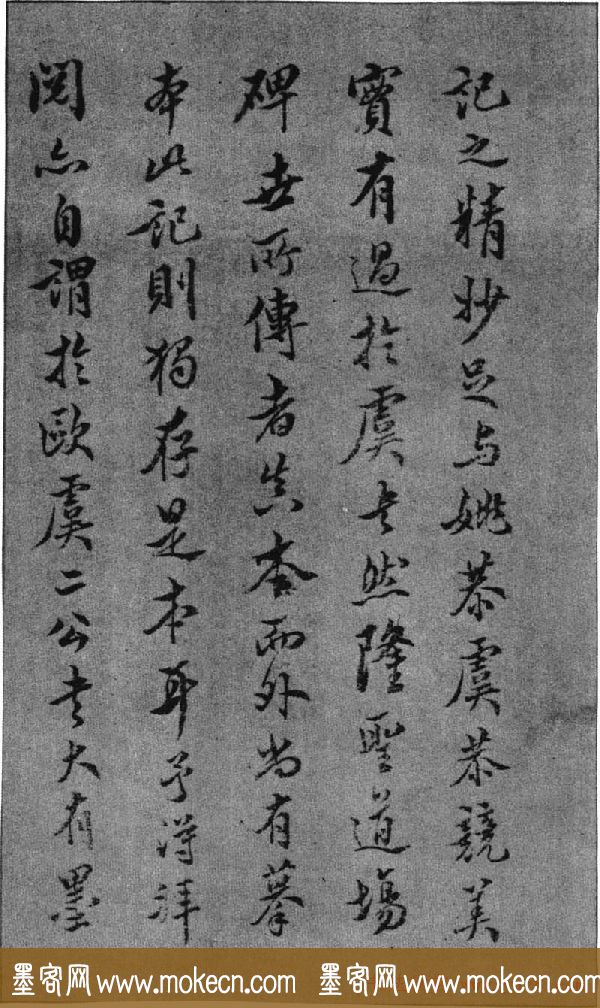 記之精妙足与姚恭虞恭競美
實有過於虞者然隆聖道場
碑世所傳者真本而外尚有摹
本此記則獨存是本耳予得拜
閱亦自謂於歐虞二公書大有墨
墨客网 www.mokecn.com 墨客网 www.mokecn.com